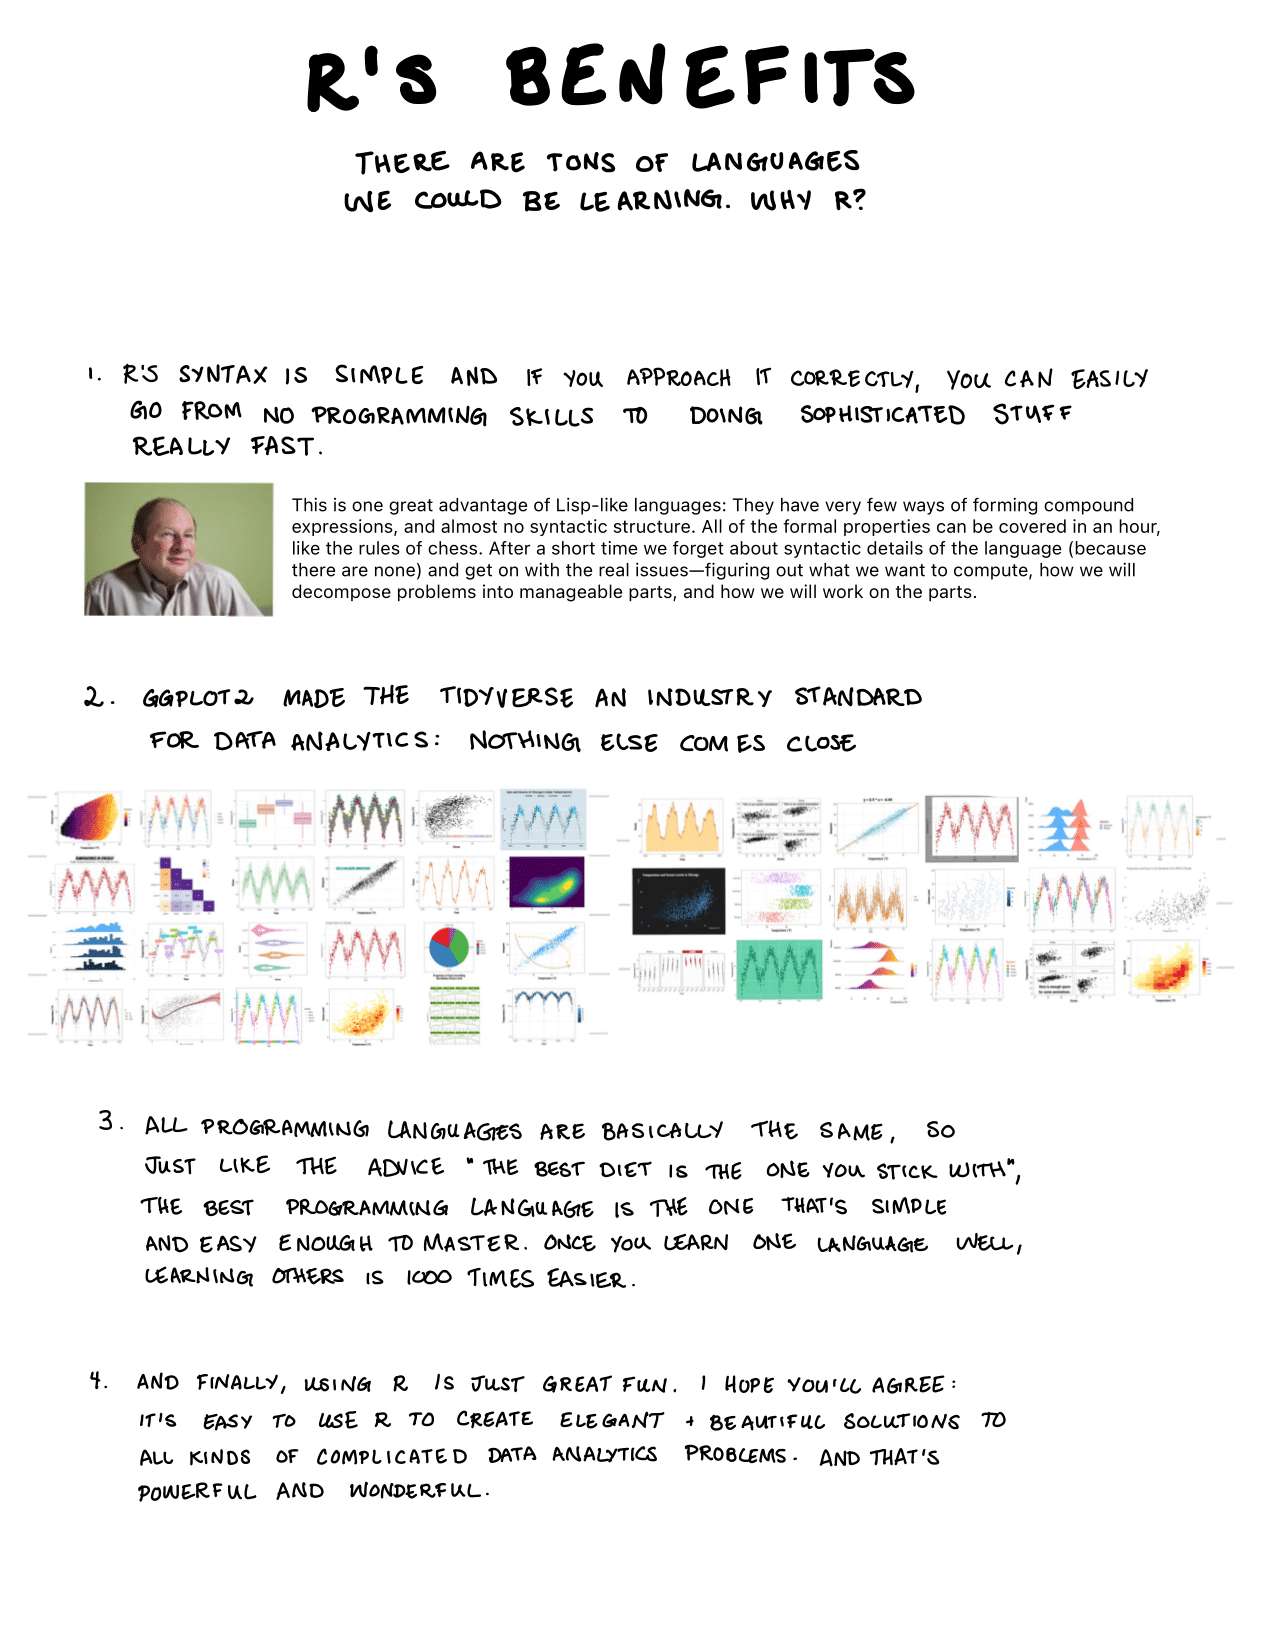 R'S BENEFITS
THERE ARE TONS OF LANGUAGES
WE COULD BE LEARNING. WHY R?
1. R'S SYNTAX IS SIMPLE AND IF YOU APPROACH IT CORRECTLY, YOU CAN EASILY
GO FROM NO PROGRAMMING SKILLS TO DOING SOPHISTICATED STUFF
REALLY FAST.
This is one great advantage of Lisp-like languages: They have very few ways of forming compound
expressions, and almost no syntactic structure. All of the formal properties can be covered in an hour,
like the rules of chess. After a short time we forget about syntactic details of the language (because
there are none) and get on with the real issues—figuring out what we want to compute, how we will
decompose problems into manageable parts, and how we will work on the parts.
2. GGPLOT2 MADE THE TIDYVERSE AN INDUSTRY STANDARD
FOR DATA ANALYTICS: NOTHING ELSE COMES CLOSE
3. ALL PROGRAMMING LANGUAGES ARE BASICALLY THE SAME, SO
JUST LIKE THE ADVICE "THE BEST DIET IS THE ONE YOU STICK WITH",
THE BEST PROGRAMMING LANGUAGE IS THE ONE THAT'S SIMPLE
AND EASY ENOUGH TO MASTER. ONCE YOU LEARN ONE LANGUAGE WELL,
LEARNING OTHERS IS 1000 TIMES EASIER.
4. AND FINALLY, USING R IS JUST GREAT FUN. I HOPE YOU'LL AGREE:
IT'S EASY TO USE R TO CREATE ELEGANT + BEAUTIFUL SOLUTIONS TO
ALL KINDS OF COMPLICATED DATA ANALYTICS PROBLEMS. AND THAT'S
POWERFUL AND WONDERFUL.